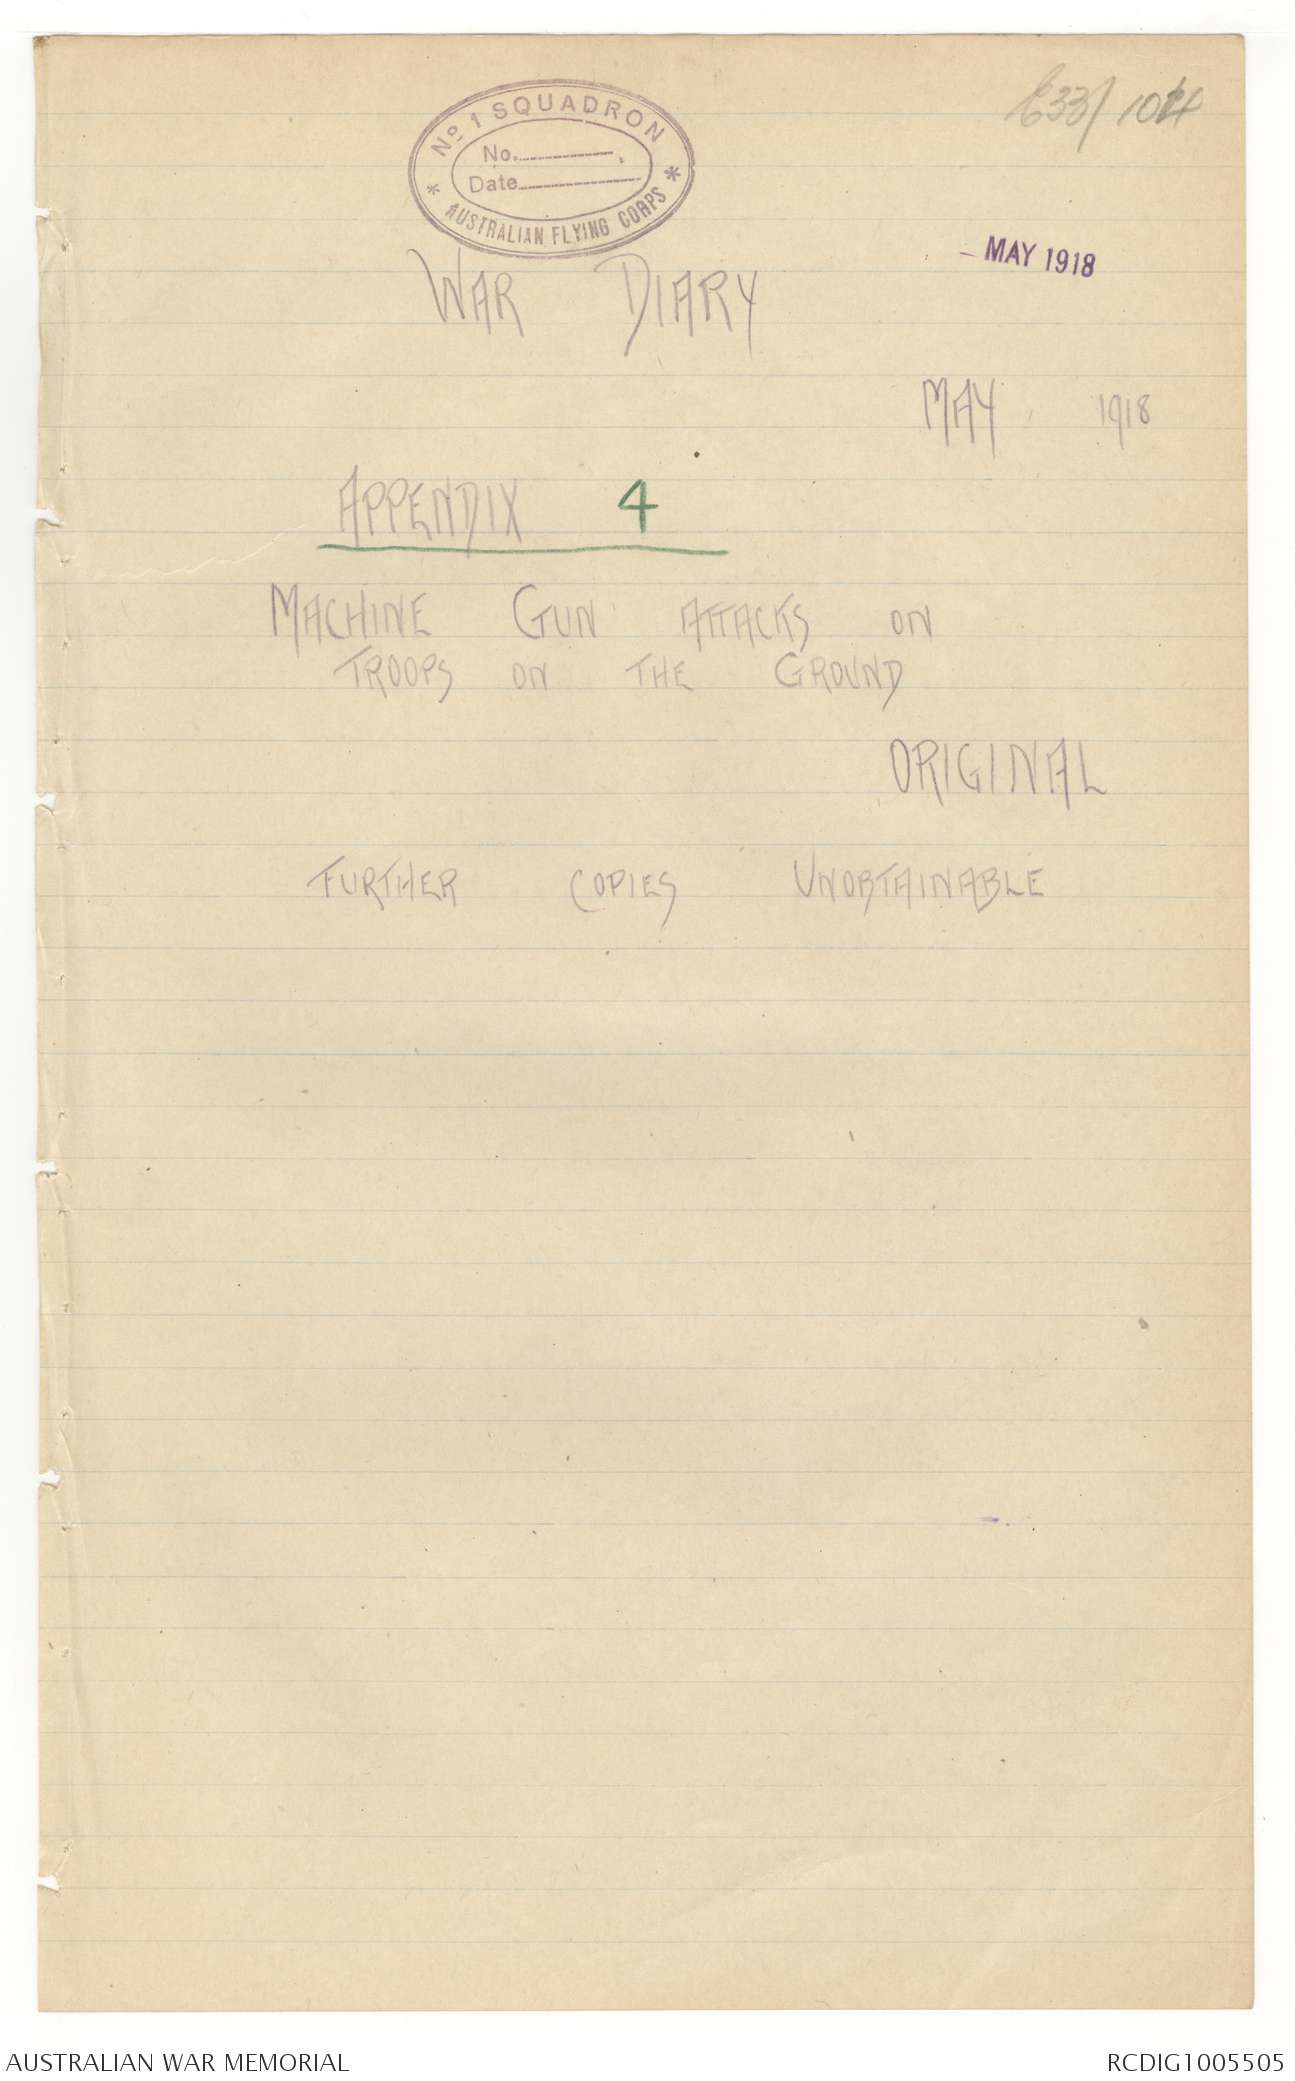 No 1 SQUADRON
No.
Date
* AUSTRALIAN FLYING CORPS *
E33/
- MAY 1918
WAR DIARY
MAY 1918
APPENDIX 4
MACHINE GUN ATTACKS ON
TROOPS ON THE GROUND
ORIGINAL
FURTHER COPIES UNOBTAINABLE
AUSTRALIAN WAR MEMORIAL
RCDIG1005505